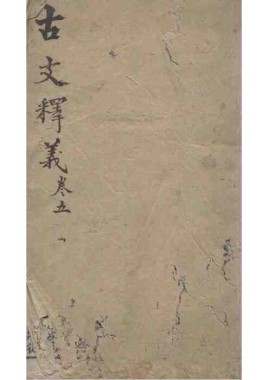 古文釋義卷五